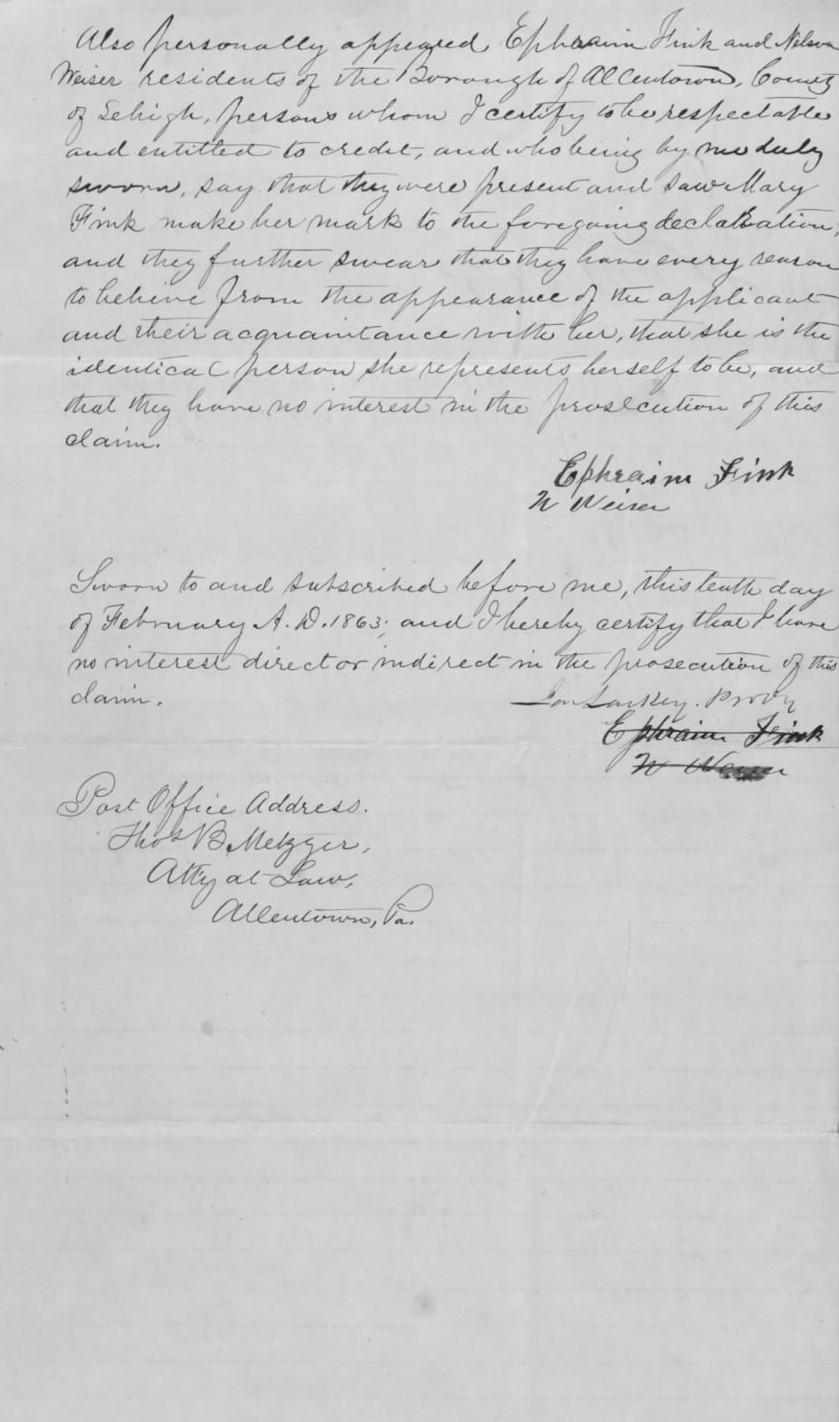 Also personally appeared Ephraim Fink and Nelson
Weiser residents of the Borough of Allentown, County
of Lehigh, persons whom I certify to be respectable
and entitled to credit, and who being by me duly
sworn, say that they were present and saw Mary
Fink make her mark to the foregoing declaration,
and they further swear that they have every reason
to believe from the appearance of the applicant
and their acquaintance with her, that she is the
identical person she represents herself to be, and
that they have no interest in the prosecution of this
claim.
Ephraim Fink
N Weiser
Sworn to and subscribed before me, this tenth day
of February A. D. 1863; and I hereby certify that I have
no interest direct or indirect in the prosecution of this
claim.
Ephraim Fink
N Weiser
Post Office Address.
Thos B. Metzger,
Atty at Law,
Allentown, Pa.